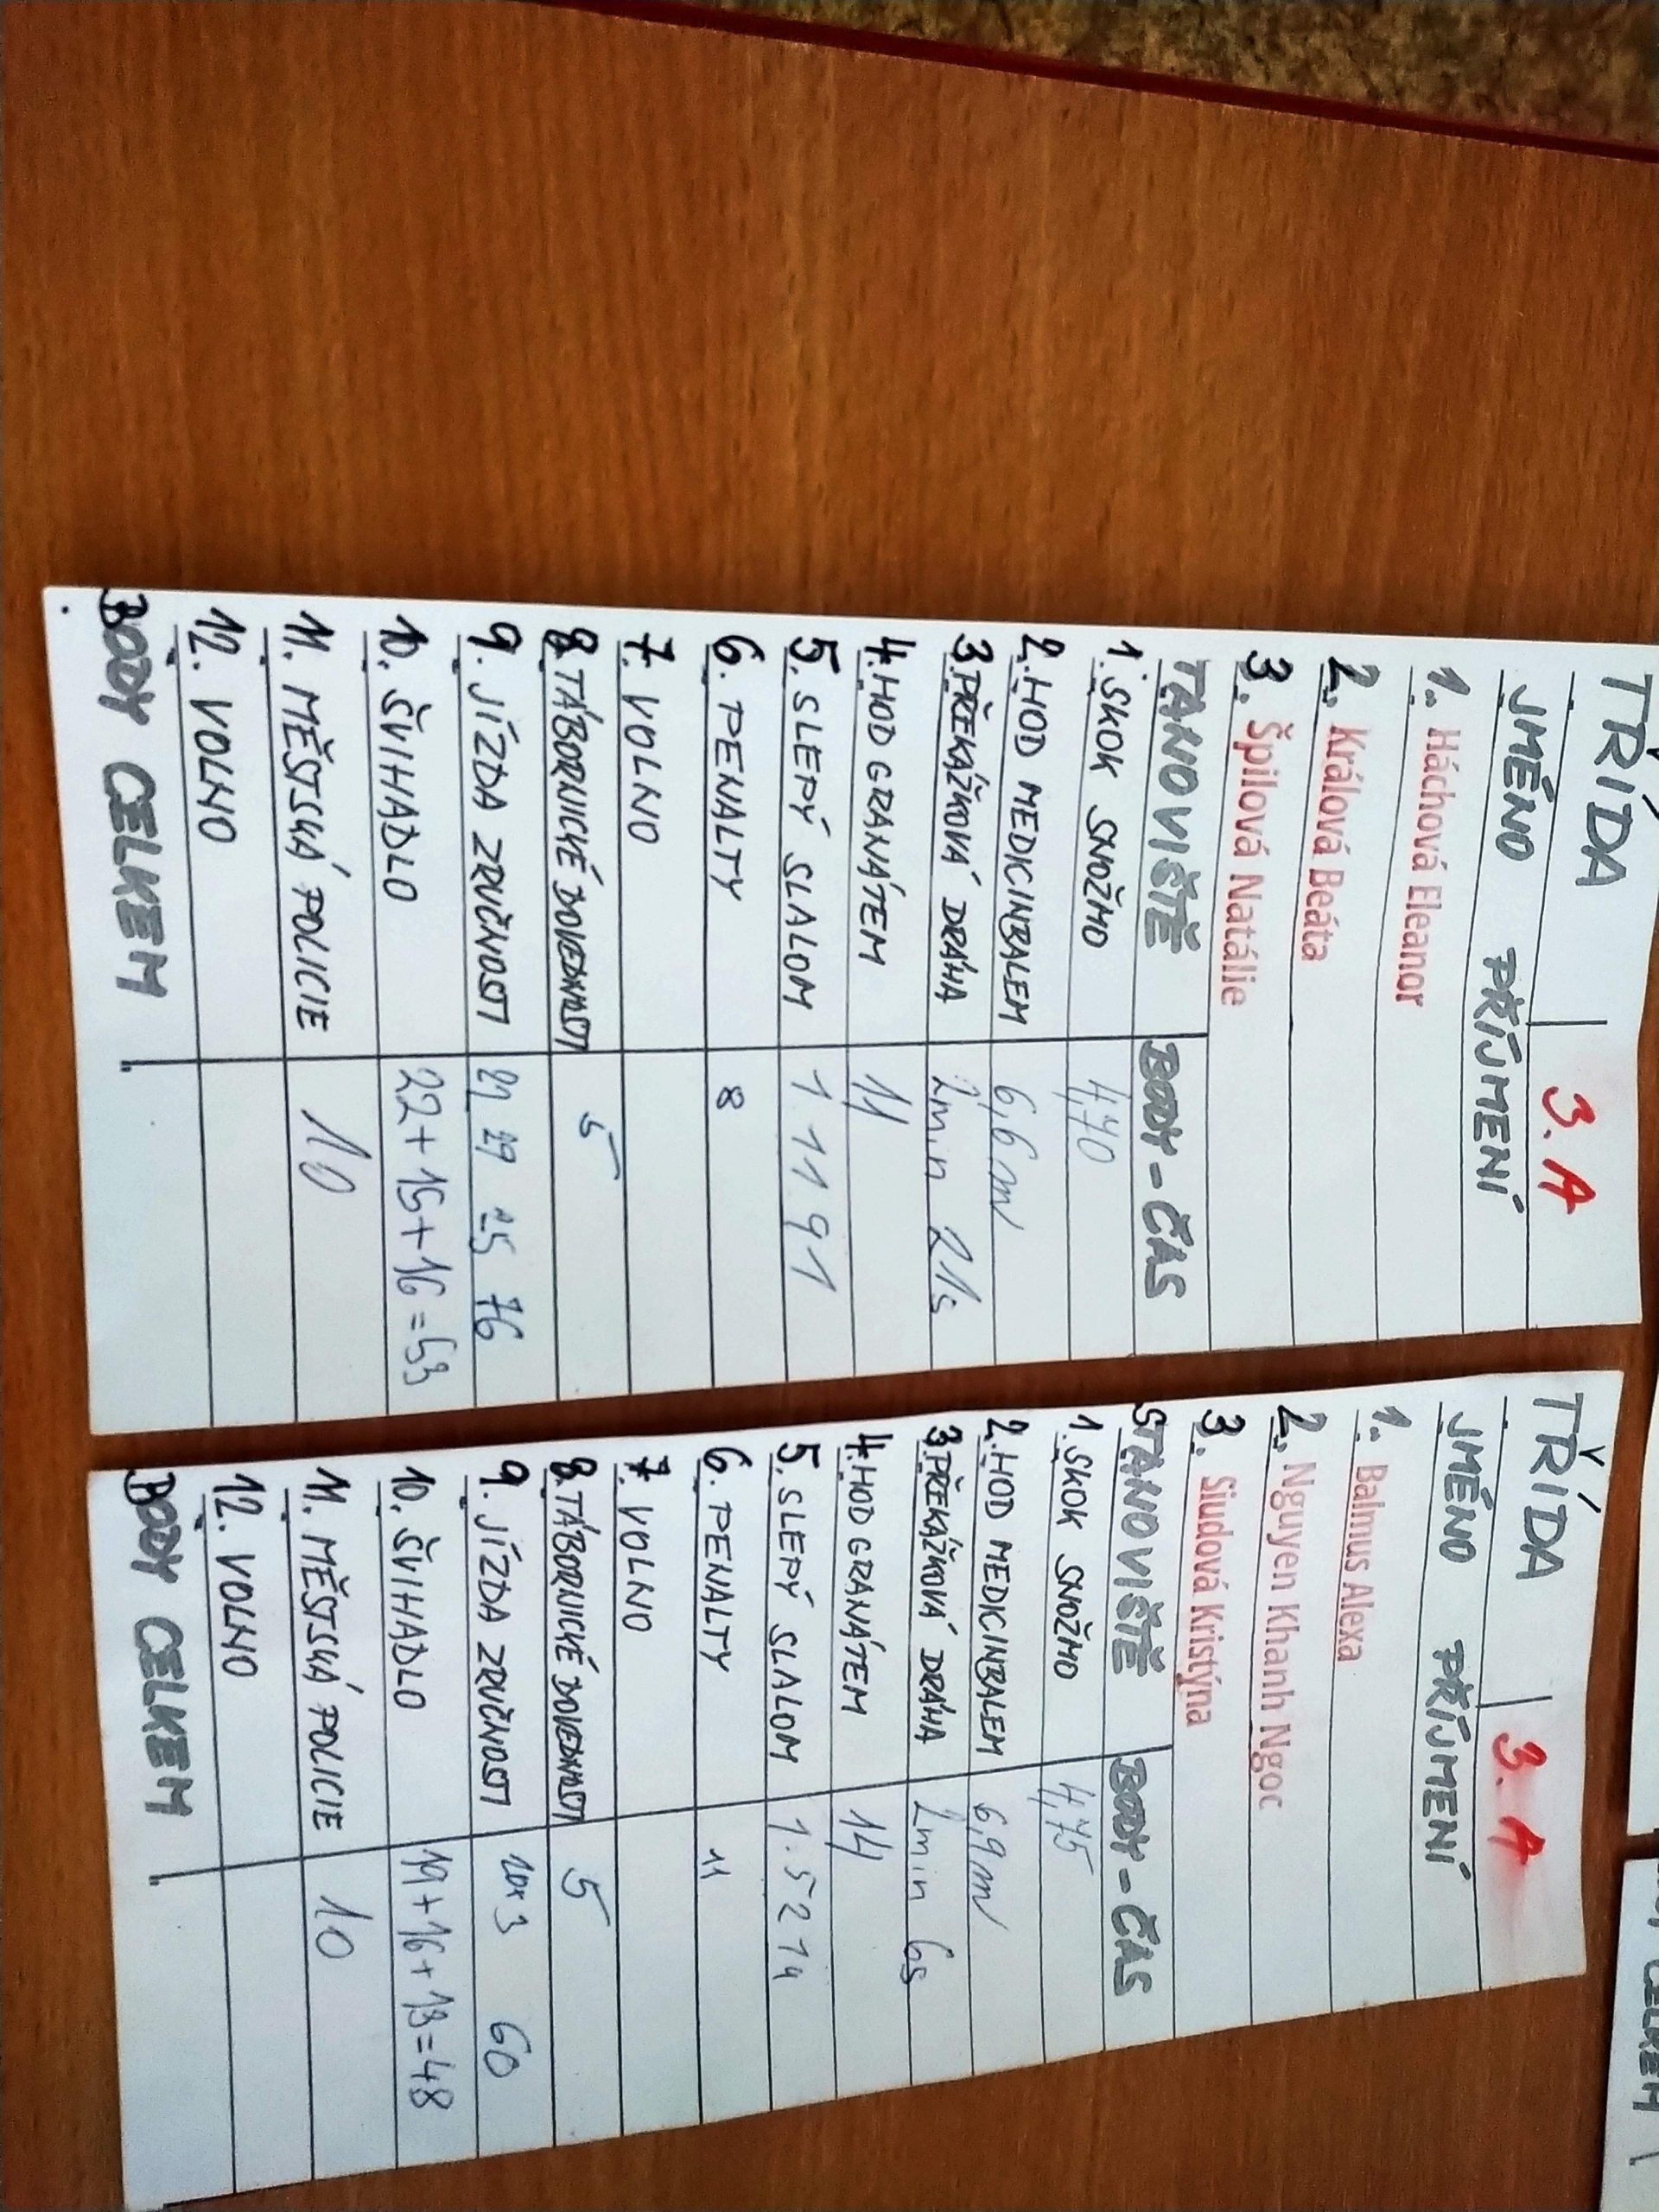 TŘÍDA 3. A
JMÉNO PŘÍJMENÍ
1. Háchová Eleanor
2. Králová Beáta
3. Špilová Natálie
STANOVIŠTĚ BODY - ČAS
1. SKOK SNOŽMO 4,70
2. HOD MEDICINBALEM 6,6m
3. PŘEKÁŽKOVÁ DRÁHA 2min 21s
4. HOD GRANÁTEM 11
5. SLEPÝ SLALOM 1 11 91
6. PENALTY 8
7. VOLNO
8. TÁBORNICKÉ DOVEDNOSTI 5
9. JÍZDA ZRUČNOSTI 29 25 76
10. ŠVIHADLO 22+15+16=53
11. MĚSTSKÁ POLICIE 10
12. VOLNO
BODY CELKEM
TŘÍDA 3. A
JMÉNO PŘÍJMENÍ
1. Balmus Alexa
2. Nguyen Khanh Ngoc
3. Siudová Kristýna
STANOVIŠTĚ BODY - ČAS
1. SKOK SNOŽMO 4,75
2. HOD MEDICINBALEM 6,9m
3. PŘEKÁŽKOVÁ DRÁHA 2min 6s
4. HOD GRANÁTEM 14
5. SLEPÝ SLALOM 1.52 14
6. PENALTY 11
7. VOLNO
8. TÁBORNICKÉ DOVEDNOSTI 5
9. JÍZDA ZRUČNOSTI 20x3 60
10. ŠVIHADLO 19+16+13=48
11. MĚSTSKÁ POLICIE 10
12. VOLNO
BODY CELKEM
CELKEM